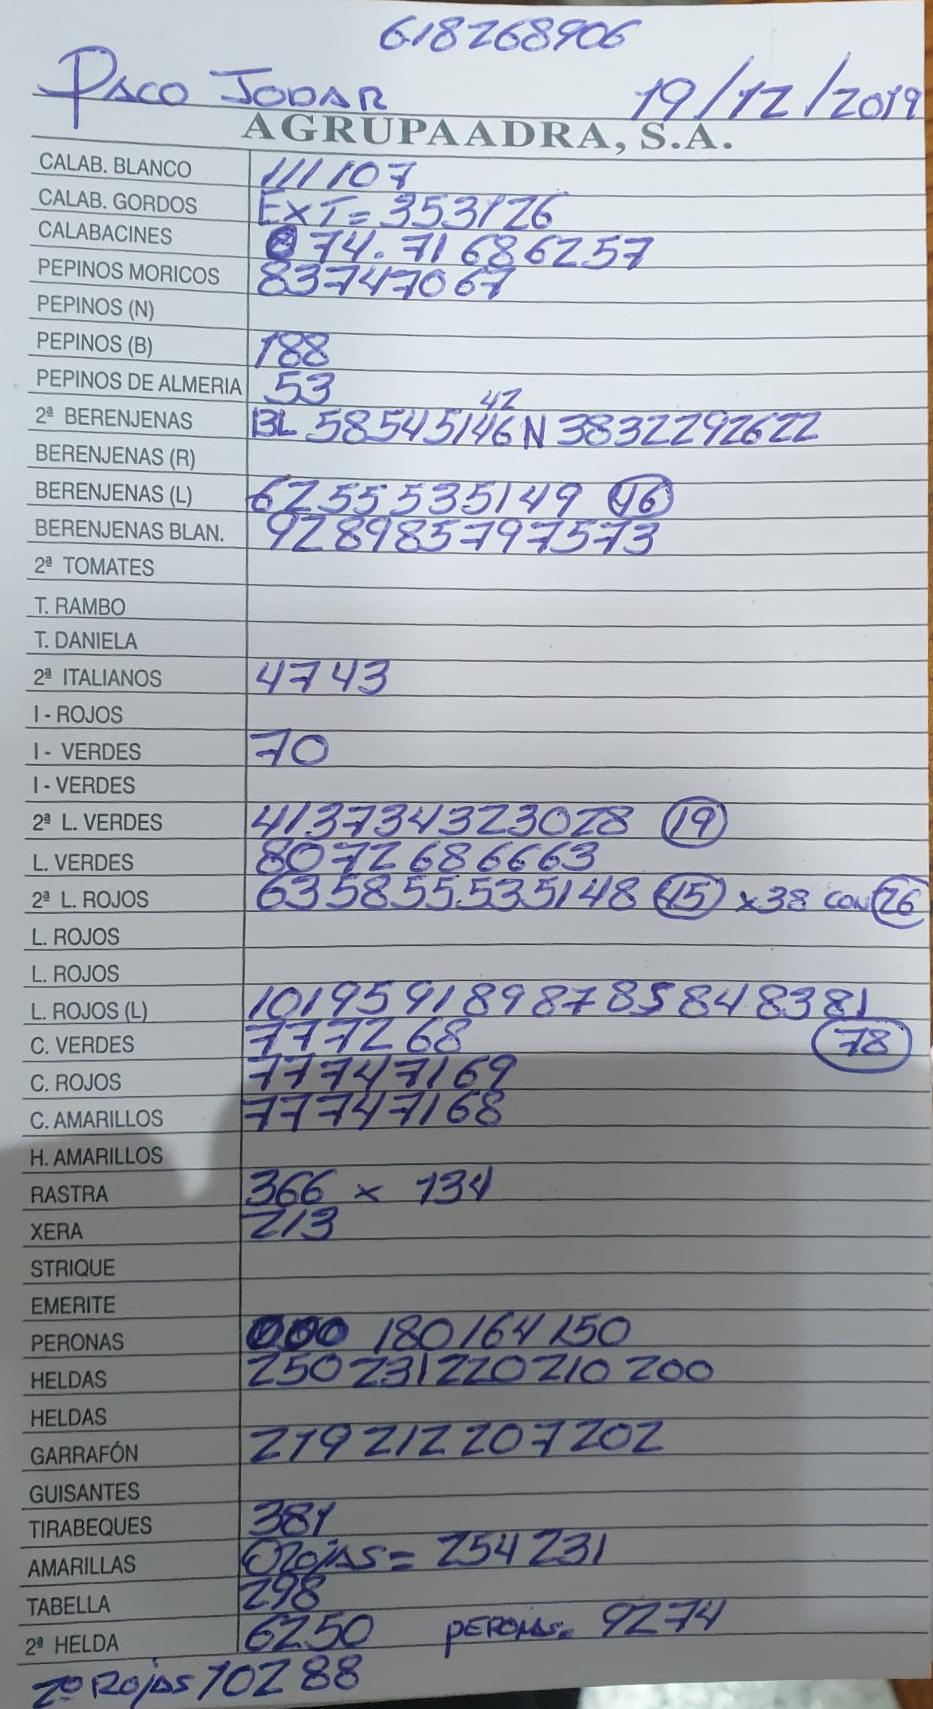 618268906
PACO JODAR 19/12/2019
AGRUPAADRA, S.A.
CALAB. BLANCO 111107
CALAB. GORDOS EXT= 353126
CALABACINES 74.71686257
PEPINOS MORICOS 83747067
PEPINOS (N)
PEPINOS (B) 188
PEPINOS DE ALMERIA 53
42
2ª BERENJENAS BL 58545146 N 3832292622
BERENJENAS (R)
BERENJENAS (L) 6255535149 46
BERENJENAS BLAN. 92898579 7573
2ª TOMATES
T. RAMBO
T. DANIELA
2ª ITALIANOS 4743
I - ROJOS
I - VERDES 70
I - VERDES
2ª L. VERDES 413734323028 19
L. VERDES 80726866 63
2ª L. ROJOS 635855535148 45 x38 CON 26
L. ROJOS
L. ROJOS
L. ROJOS (L) 10195918987858483 81
C. VERDES 777268 78
C. ROJOS 77747169
C. AMARILLOS 77747168
H. AMARILLOS
RASTRA 366 x 134
XERA 213
STRIQUE
EMERITE
PERONAS 180164150
HELDAS 250231220210 200
HELDAS
GARRAFÓN 219212207202
GUISANTES
TIRABEQUES 381
AMARILLAS ROJAS = 254231
TABELLA 298
2ª HELDA 6250 PERONAS= 9274
2º ROJAS 10288